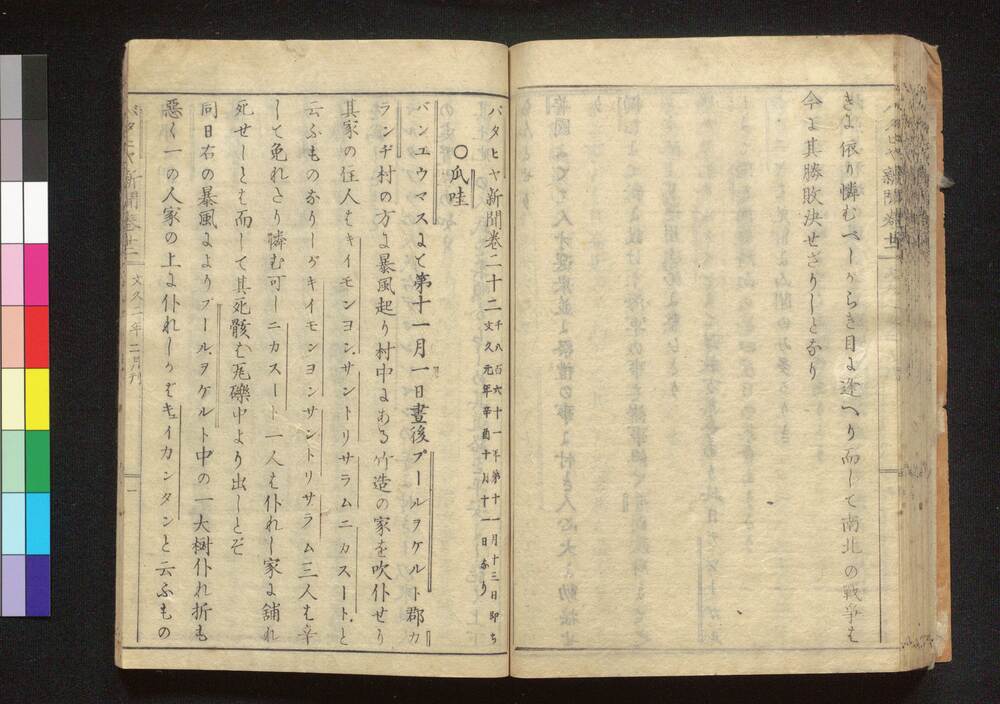 きに依り憐むべからき目に逢へり而して南北の戦争は
今に其勝敗決せざりしとなり
バタヒヤ新聞巻二十二
千八百六十一年第十一月十三日即ち
文久元年辛酉十月十一日なり
〇爪哇
バンユウマスにて第十一月一日晝後プールヲケルト郡カ
ランヂ村の方に暴風起り村中にある竹造の家を吹仆せり
其家の住人はキイモンヨン、サントリサラムニカスート、と
云ふものなりしがキイモンヨンサントリサラム三人は辛
して免れたり憐む可しニカスート一人は仆れし家に舗れ
死せしとは而して其死骸は瓦礫中より出しとぞ
同日右の暴風によりプールヲケルト中の一大樹仆れ折も
悪く一の人家の上に仆れしかばキイカンタンと云ふもの
バタヒヤ新聞巻廿二
文久二年二月刊
一